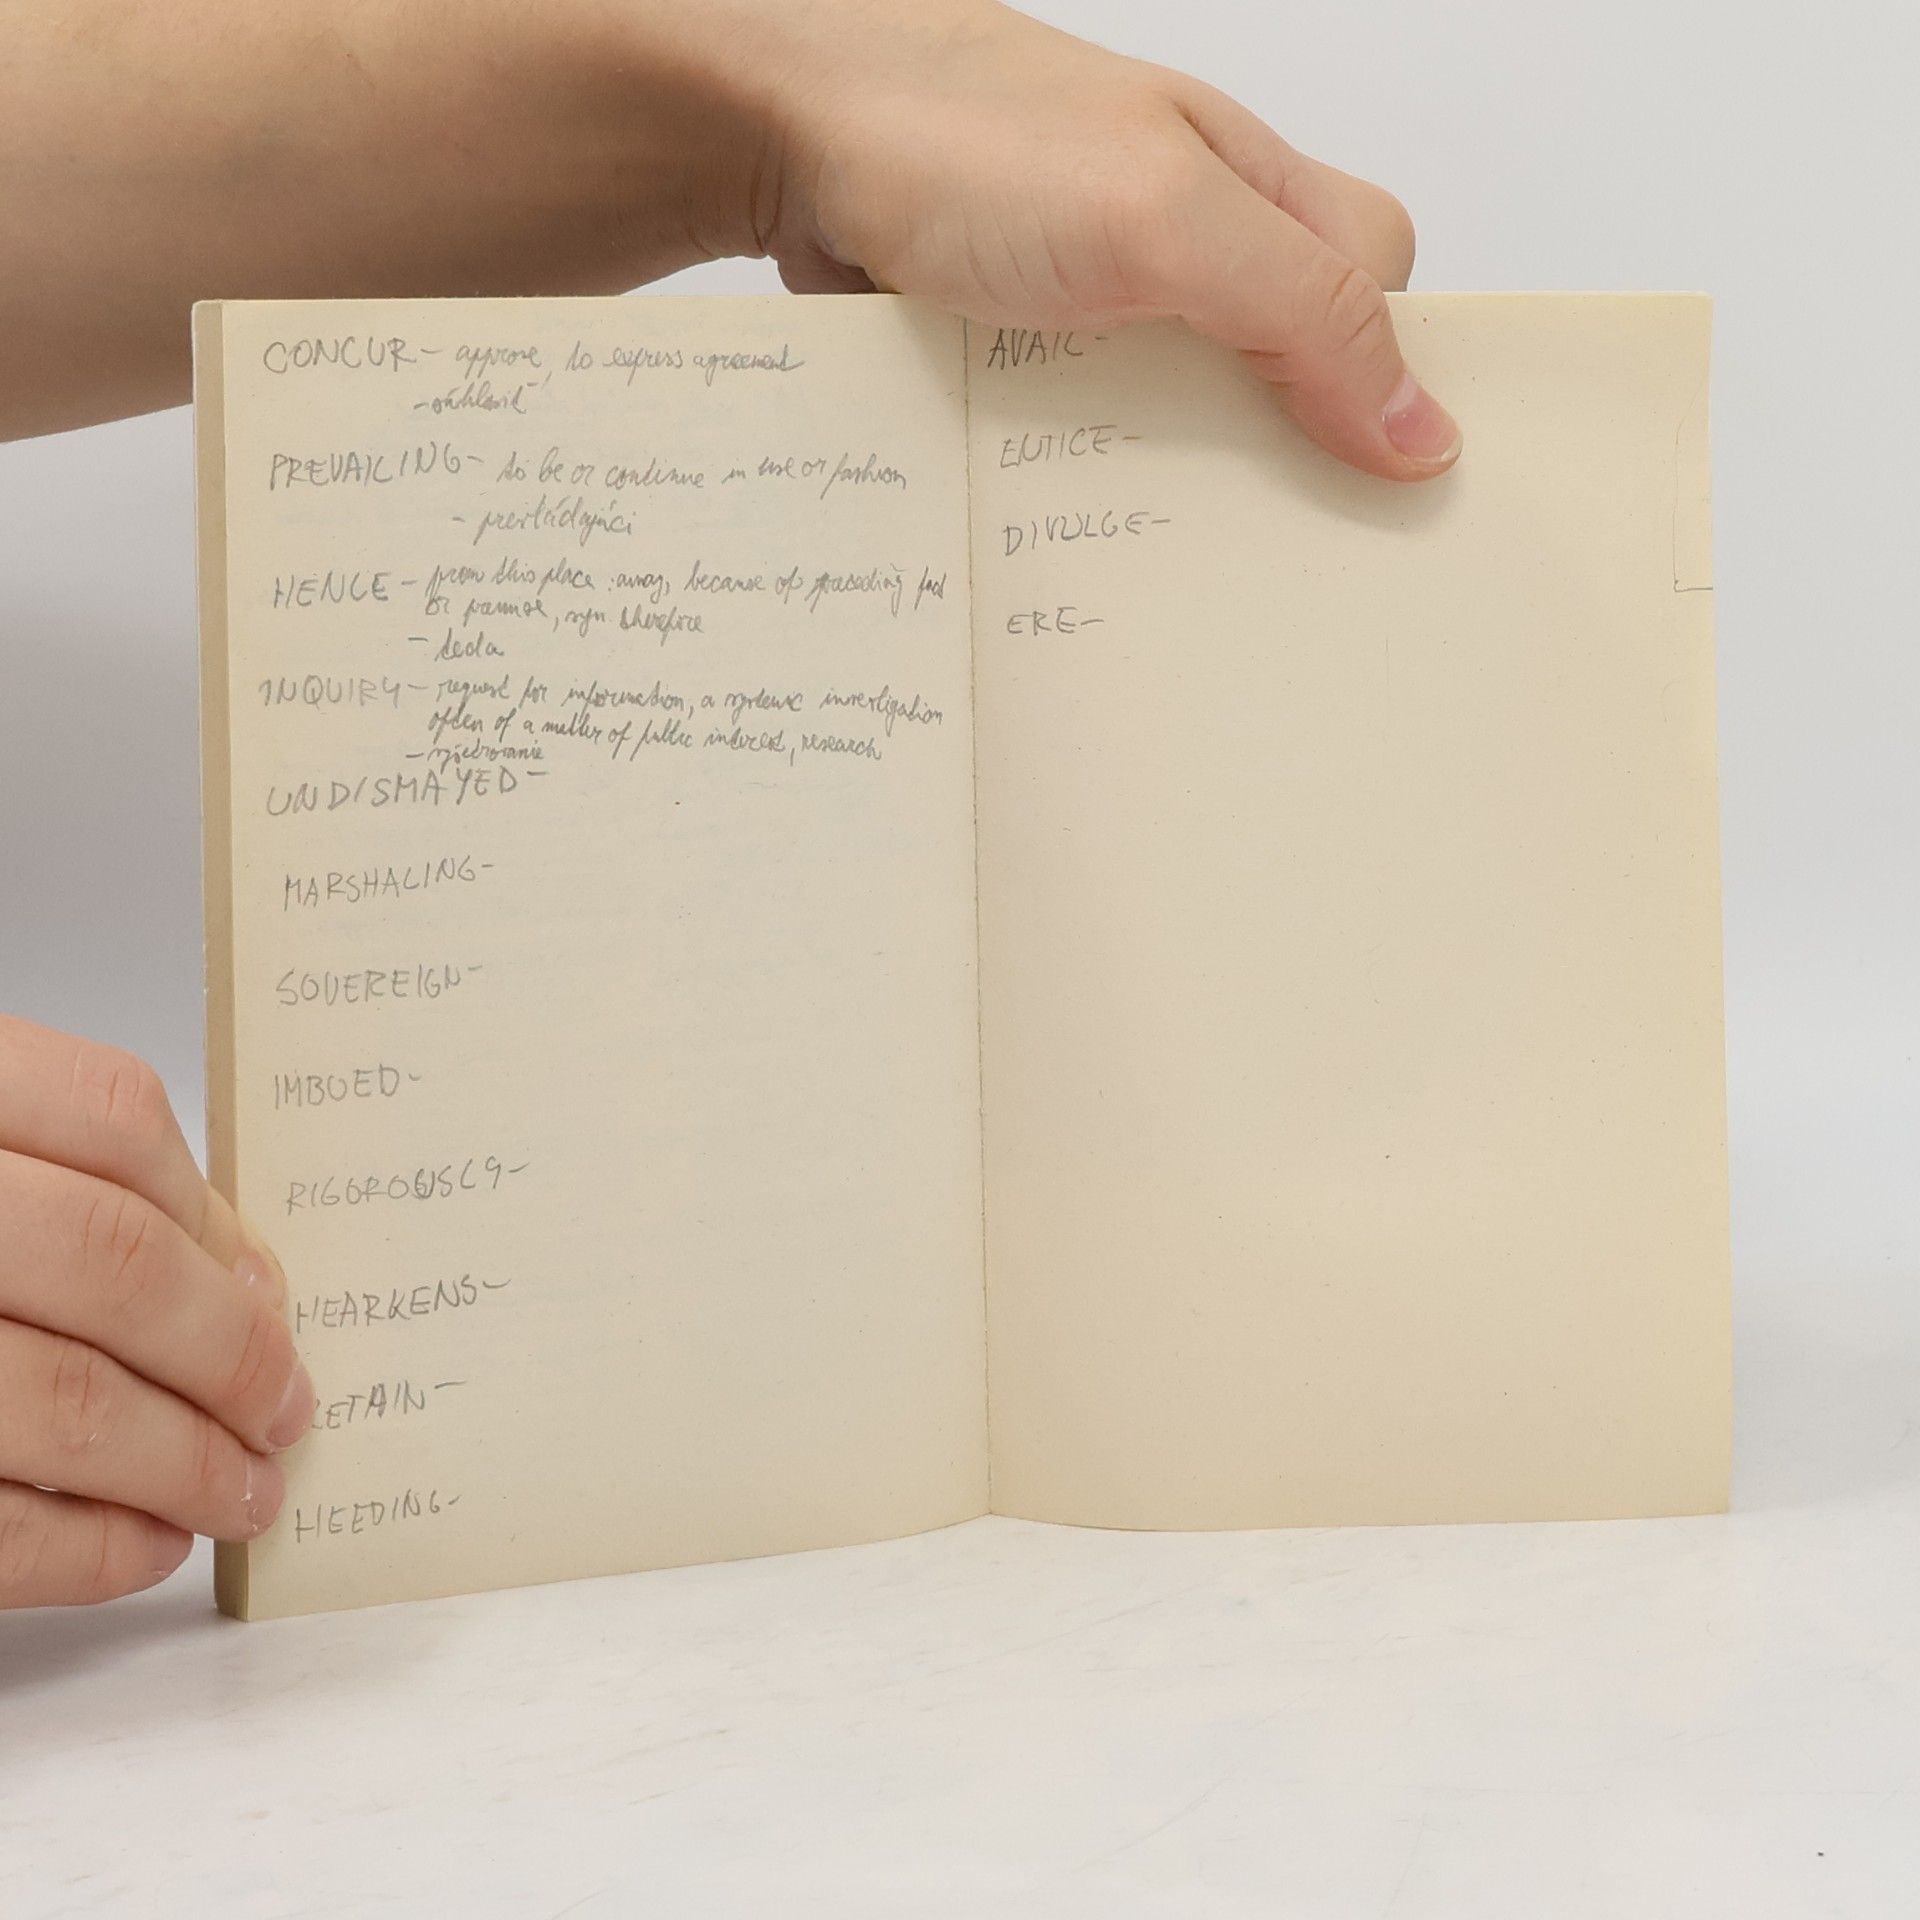 CONCUR - approve, to express agreement
- súhlasiť
PREVAILING - to be or continue in use or fashion
- prevládajúci
HENCE - from this place : away, because of preceding fact
or premise, syn. therefore
- teda
INQUIRY - request for information, a systemic investigation
often of a matter of public interest, research
- vyšetrovanie
UNDISMAYED -
MARSHALING -
SOVEREIGN -
IMBUED -
RIGOROUSLY -
HEARKENS -
RETAIN -
HEEDING -
AVAIL -
ENTICE -
DIVULGE -
ERE -